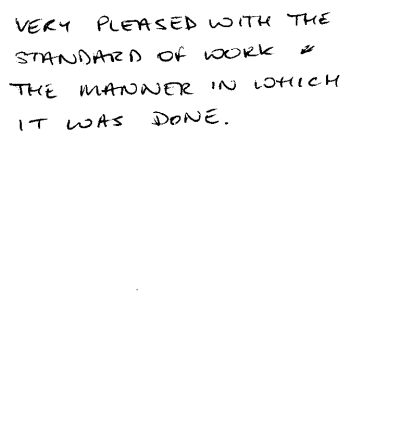 VERY PLEASED WITH THE
STANDARD OF WORK &
THE MANNER IN WHICH
IT WAS DONE.